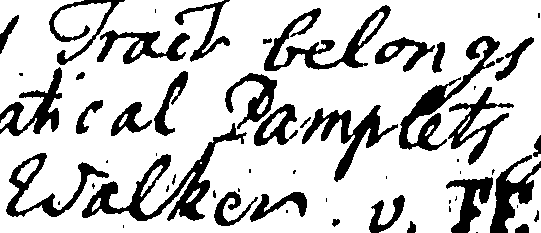 Tract belongs
atical Pamplets
Walker. v. FF.